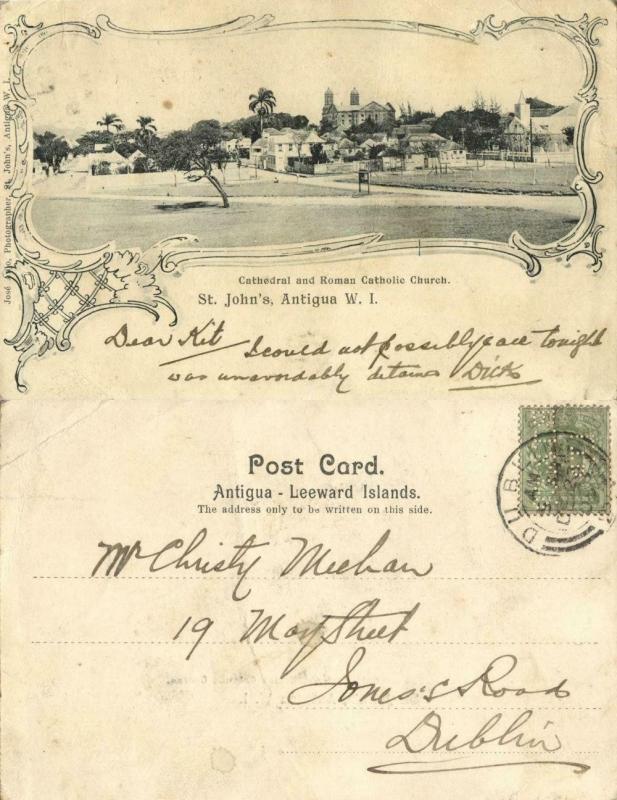 José Photographer, St. John's, Antigua W. I.
Cathedral and Roman Catholic Church.
St. John's, Antigua W. I.
Dear Kit I could not possibly tonight
was unavoidably Dick
Post Card.
Antigua - Leeward Islands.
The address only to be written on this side.
DUBL
AM
Mr Christy Meehan
19 May Street
Jones's Road
Dublin